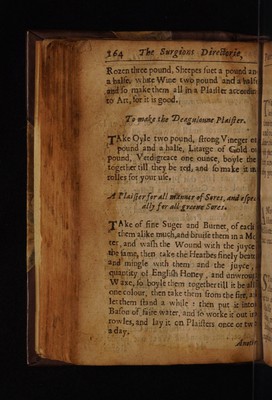 264 The Surgions Directorie,
Rozen three pound, Sheepes suet a pound and
a halfe, white Wine two pound and a halfe
and so make them all in a Plaister according
to Art, for it is good.
To make the Deaguloune Plaister.
TAke Oyle two pound, strong Vineger
pound and a halfe, Litarge of Gold
pound, Verdigrace one ounce, boyle the
together till they be red, and so make it in
rolles for your use.
A Plaister for all manner of Sores, and espe
ally for all greene Sores.
TAke of fine Suger and Burnet, of each
them alike much, and bruise them in a Mo
ter, and wash the Wound with the juyce
the same, then take the Hearbes finely beate
and mingle with them and the juyce,
quantity of English Honey, and unwrought
Waxe, so boyle them together till it be all
one colour, then take them from the fire, and
let them stand a while: then put it into
Bason of faire water, and so worke it out in
rowles, and lay it on Plaisters once or tw
a day.
Another